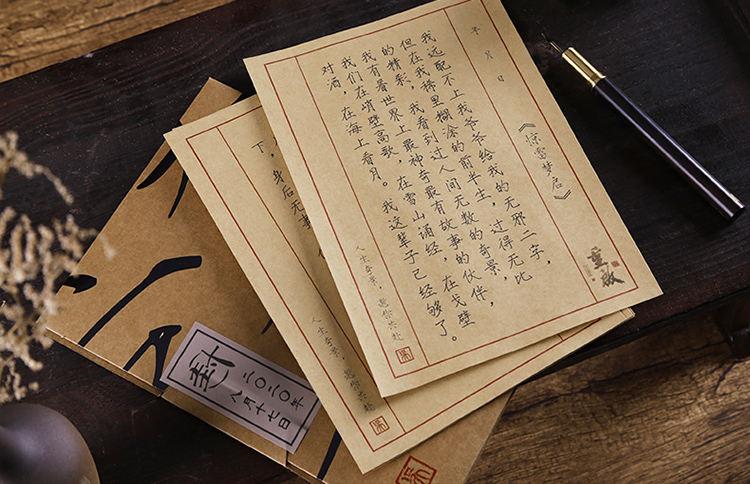 年 月 日
《惊雷梦启》
我远配不上我爷爷给我的无邪二字，
但在我稀里糊涂的前半生，过得无比
的精彩，我看到过人间无数的奇景，
我有着世界上最神奇最有故事的伙伴，
我们在峭壁高歌，在雪山诵经，在戈壁
对酒，在海上看月。我这辈子已经够了。
人生奇景，邀您共赴
重启
下，身后无
人生奇景，邀您共赴
封
二〇二〇年
八月十七日